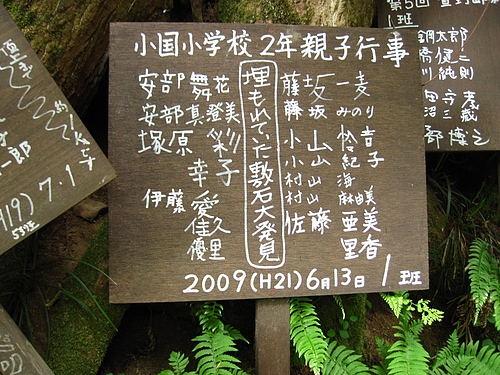 小国小学校 2年親子行事
安部 舞花
安部 真登美
塚原 彩
幸子
伊藤 愛
佳久
優里
埋もれていた敷石大発見
藤坂 一麦
藤坂 みのり
小山
小山 紀子
村山 海
村山 麻由美
佐藤 亜美
里香
2009(H21)6月13日 1班
第5回
1班
鋼太郎
健二
川 純則
一郎
7.1